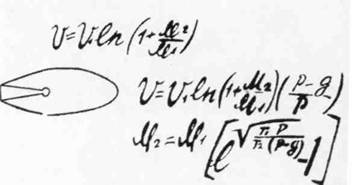 V=V₁ln(1+M₂/M₁)
V=V₁ln(1+M₂/M₁)(p-g/p)
M₂=M₁[e^√(τ₁ p/τ₂ (p-g))-1]